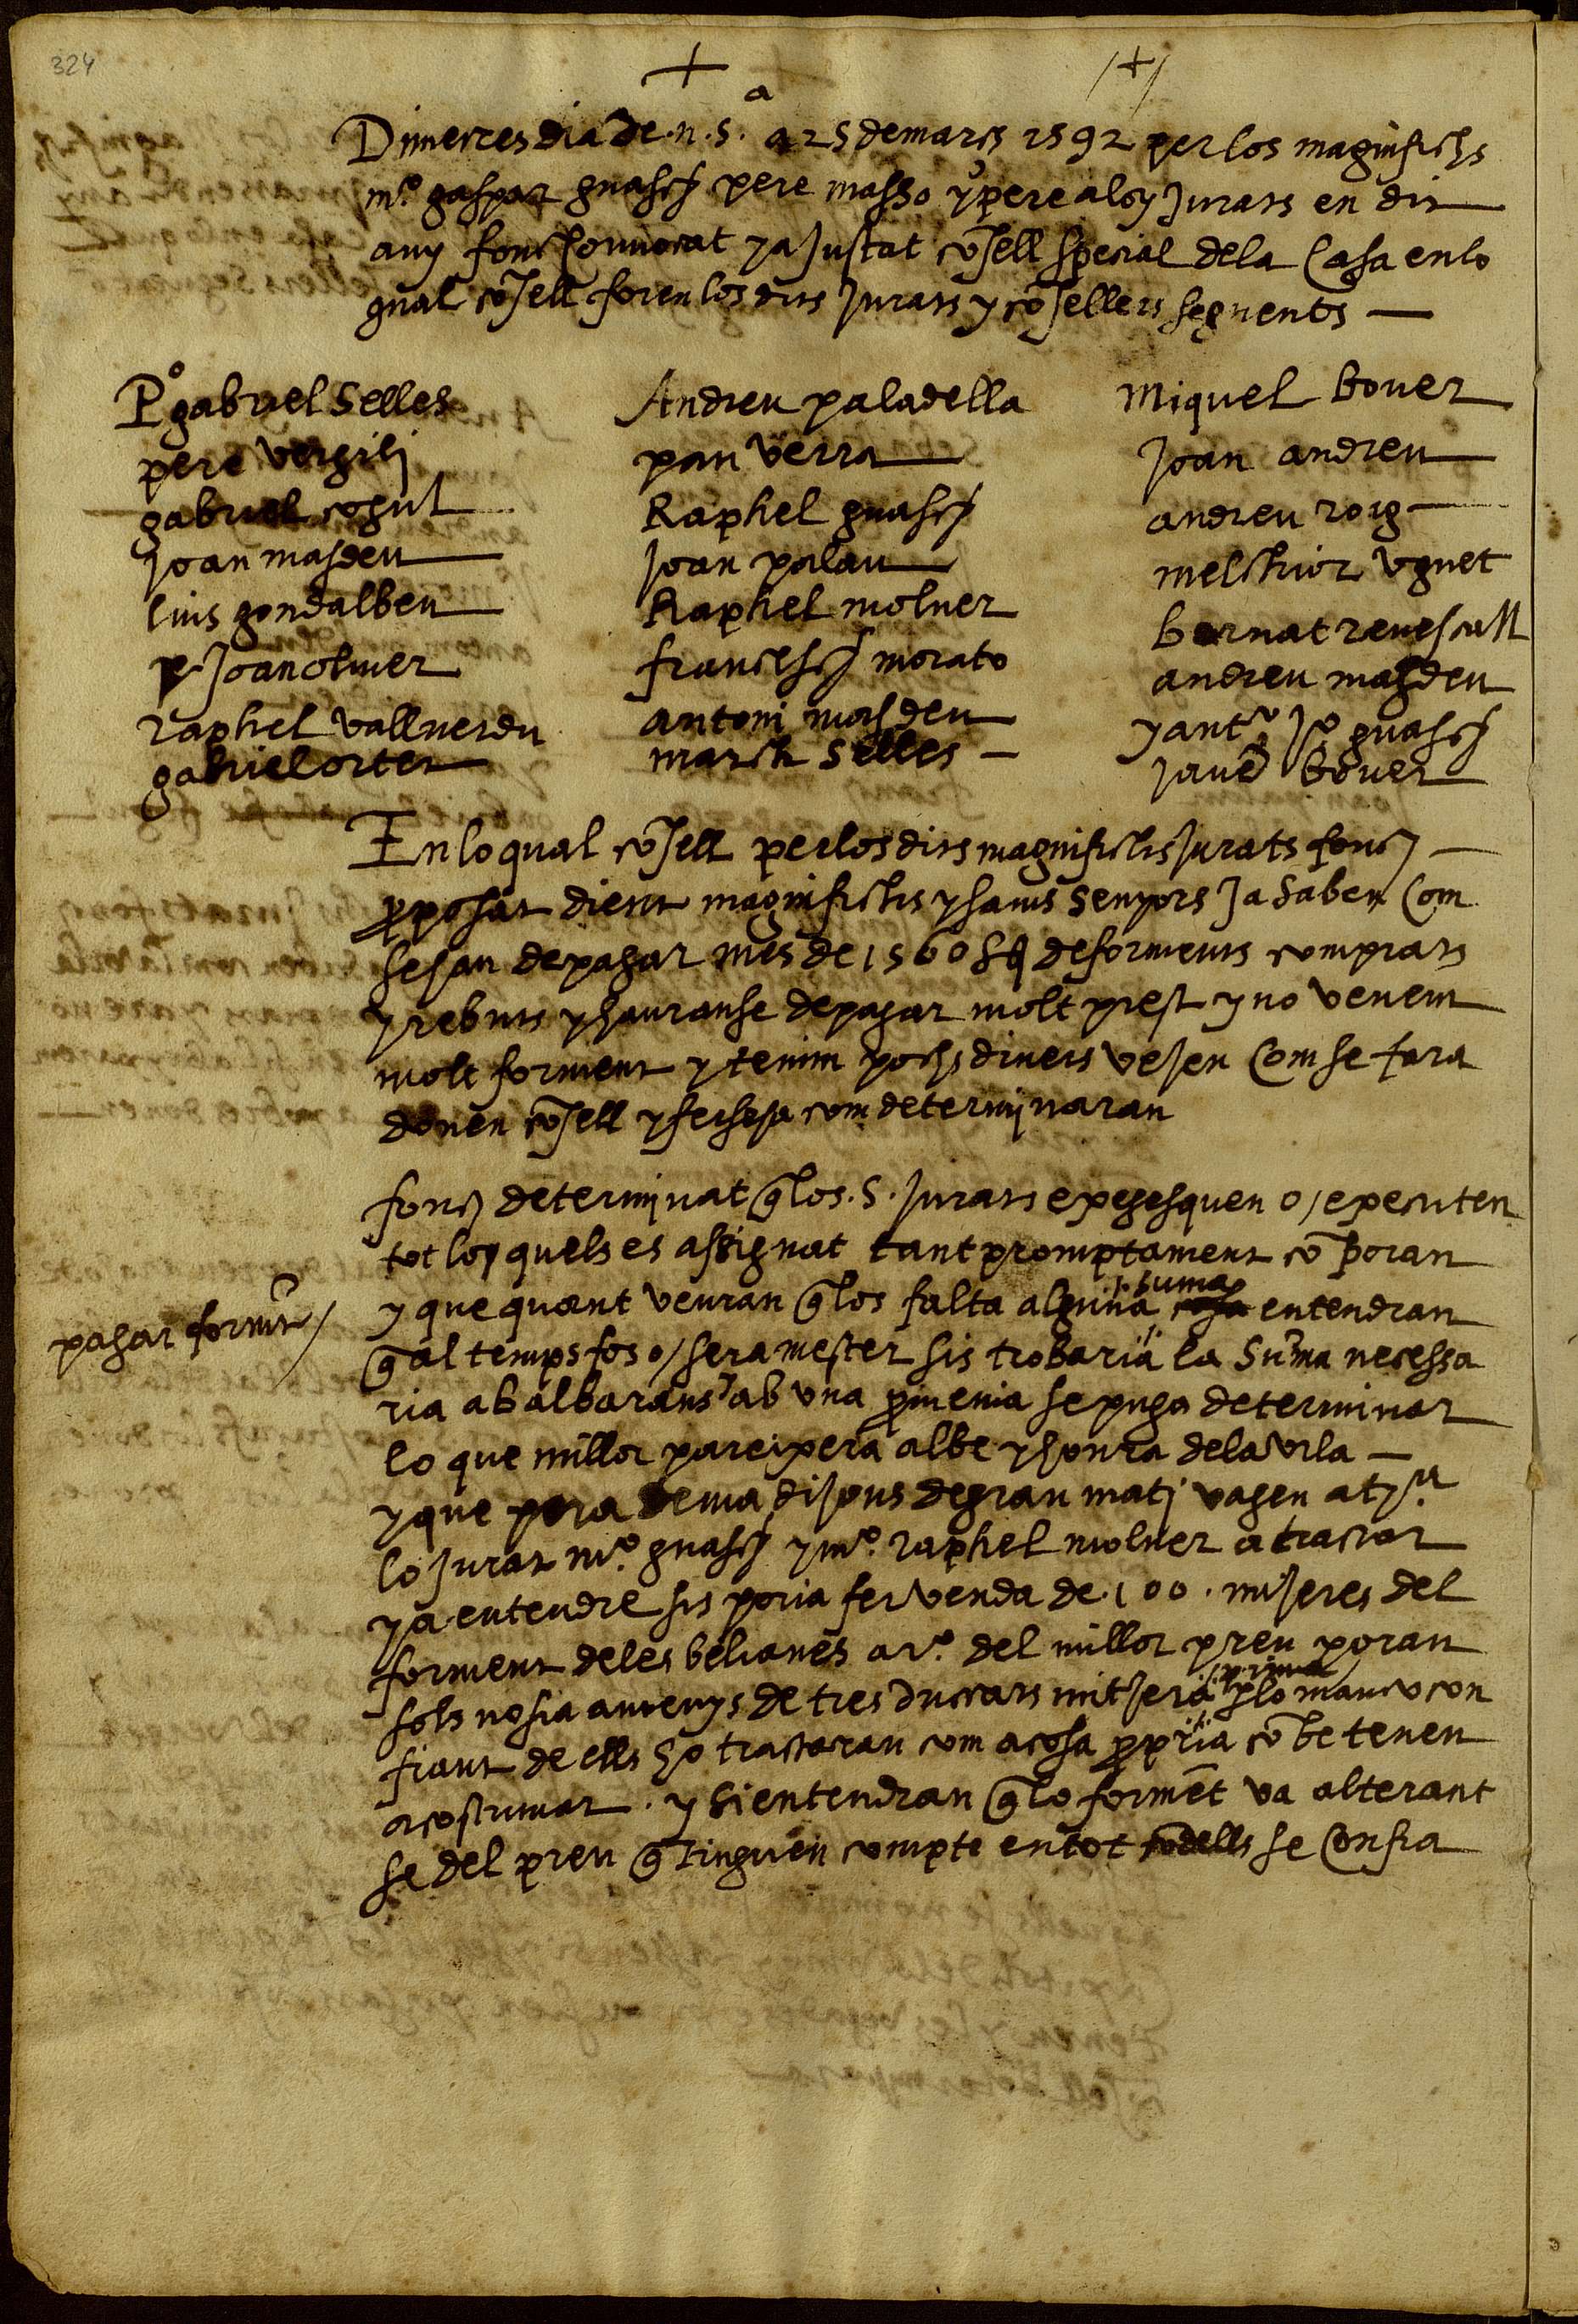 324
Dimecres dia de .n. s.ª a 25 de mars 1592 per los magnifichs
m.º gaspar guasch pere masso y pere aloy Jurats en dit
any fonch convocat y aJustat cõsell special dela Casa en lo
qual cõsell foren los dits Jurats y cõsellers seguents —
Pº gabriel Selles
pere vergili
gabriel cogul
Joan masdeu
luis gondalbeu
p. Joan oliver
raphel vallverdu
gabriel orten
Andreu paladella
pau verra
Raphel guasch
Joan palau
Raphel molner
francesch morato
antoni masdeu
march Selles —
Miquel bover
Joan andreu
andreu roig
melchior uguet
bernat
andreu masdeu
y antº Jº guasch
Jaue bover
En lo qual cõsell per los dits magnifichs Jurats fonch —
pposat dient magnifichs y savis senyors Ja saben Com
sesan de pagar mes de 1560 de forments comprats
y rebuts y hauranse de pagar molt prest y no venem
molt forment y tenim pochs diners veJen Com se fara
donen cõsell y fersesa com determinaran
fonch determinat q los .S. Jurats exegesquen o/ executen
tot lo y quels es assignat tant promptament cõ poran
y que quant veuran q los falta alguna suma entendran
pagar formt /
q al temps fos o/ sera mester sis trobaria la Suma necessa
ria ab albarans y ab una pmenia se puga determinar
lo que millor pareixera albe y honra dela vila —
y que pera dema diJous de gran mati vagen a
lo Jurat m.º guasch y m.º raphel molner a tractar
y a entendre sis poria fer venda de .100. miJeres del
forment deles belianes a rº. del millor preu poran
sols no sia a menys de tres ducats mitJera prima p lo manco con
fiant de ells ho tractaran com a cosa ppria cõ be tenen
acostumat . y si entendran q lo formẽt va alterant
se del preu q tinguen compte en tot dells se Confia